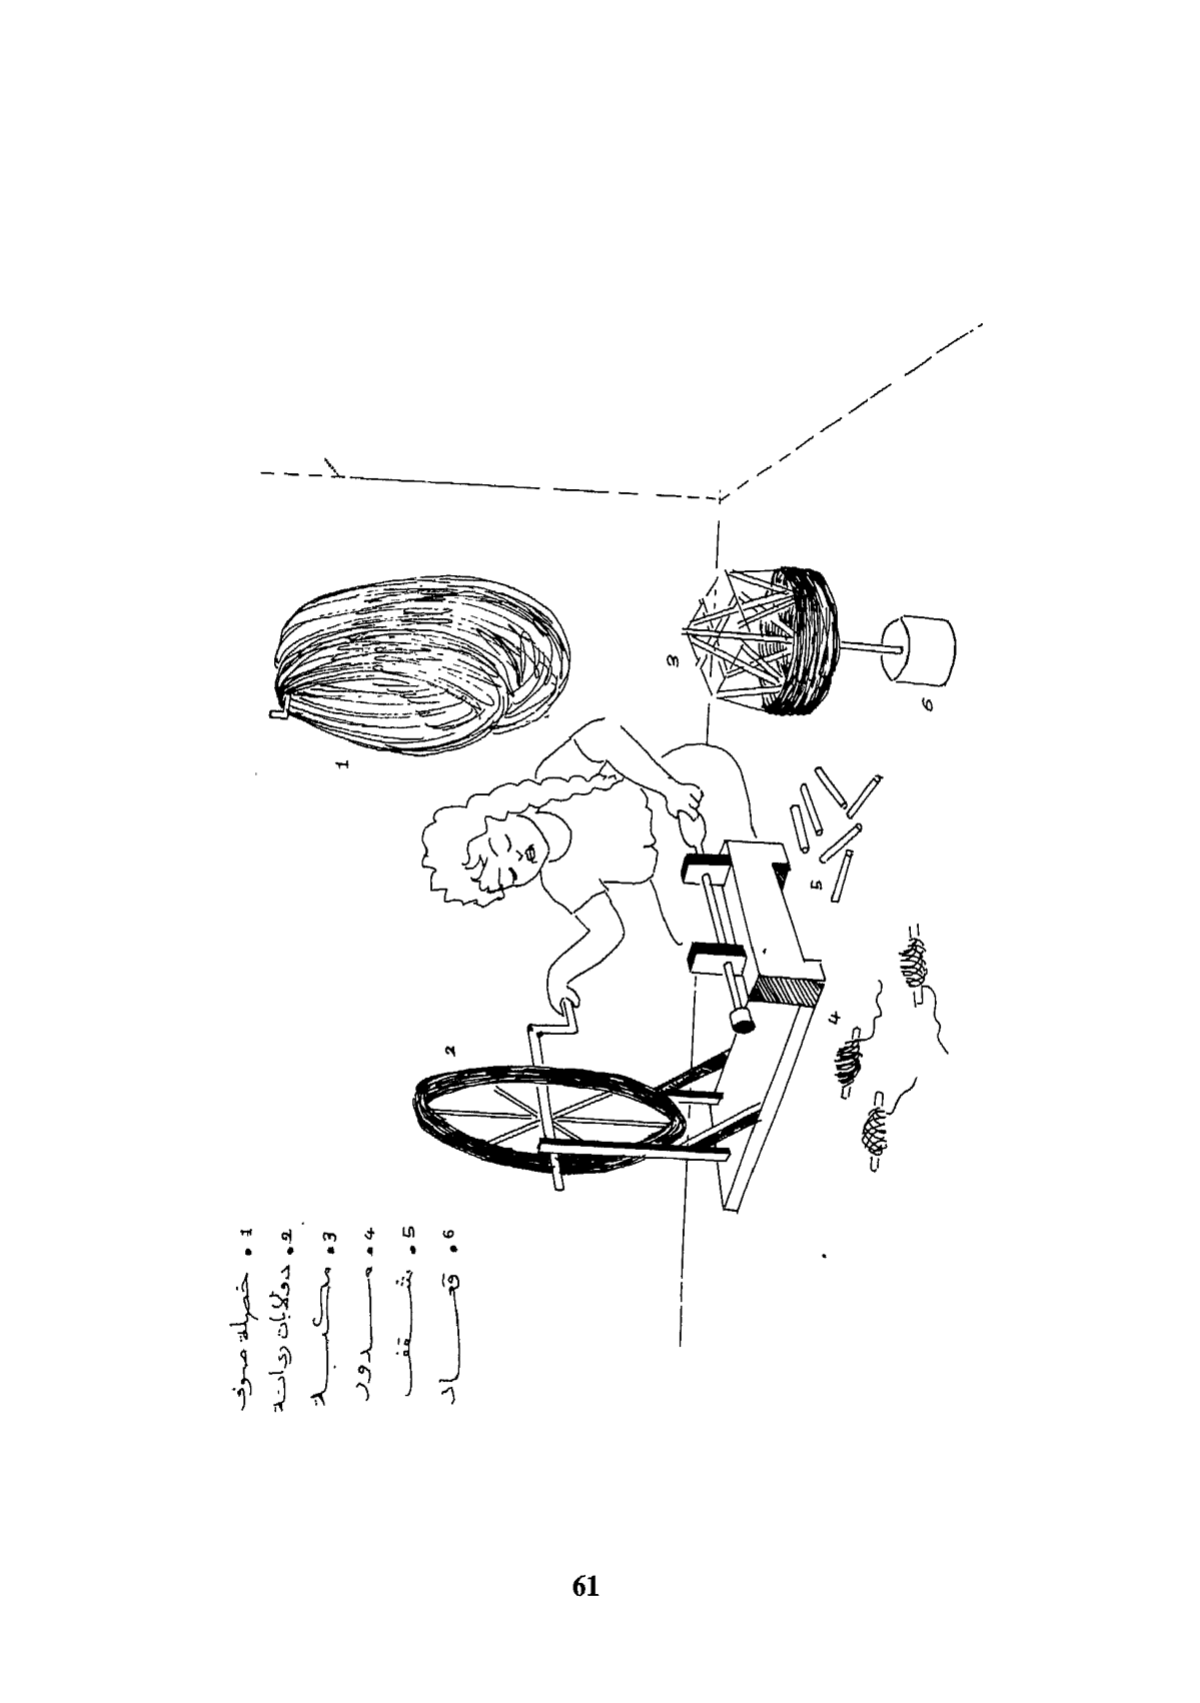 1. خصيلة صوف
2. دولاب ردانة
3. مكبة
4. مدور
5. شقف
6. قعاد
1
2
3
4
5
6
61